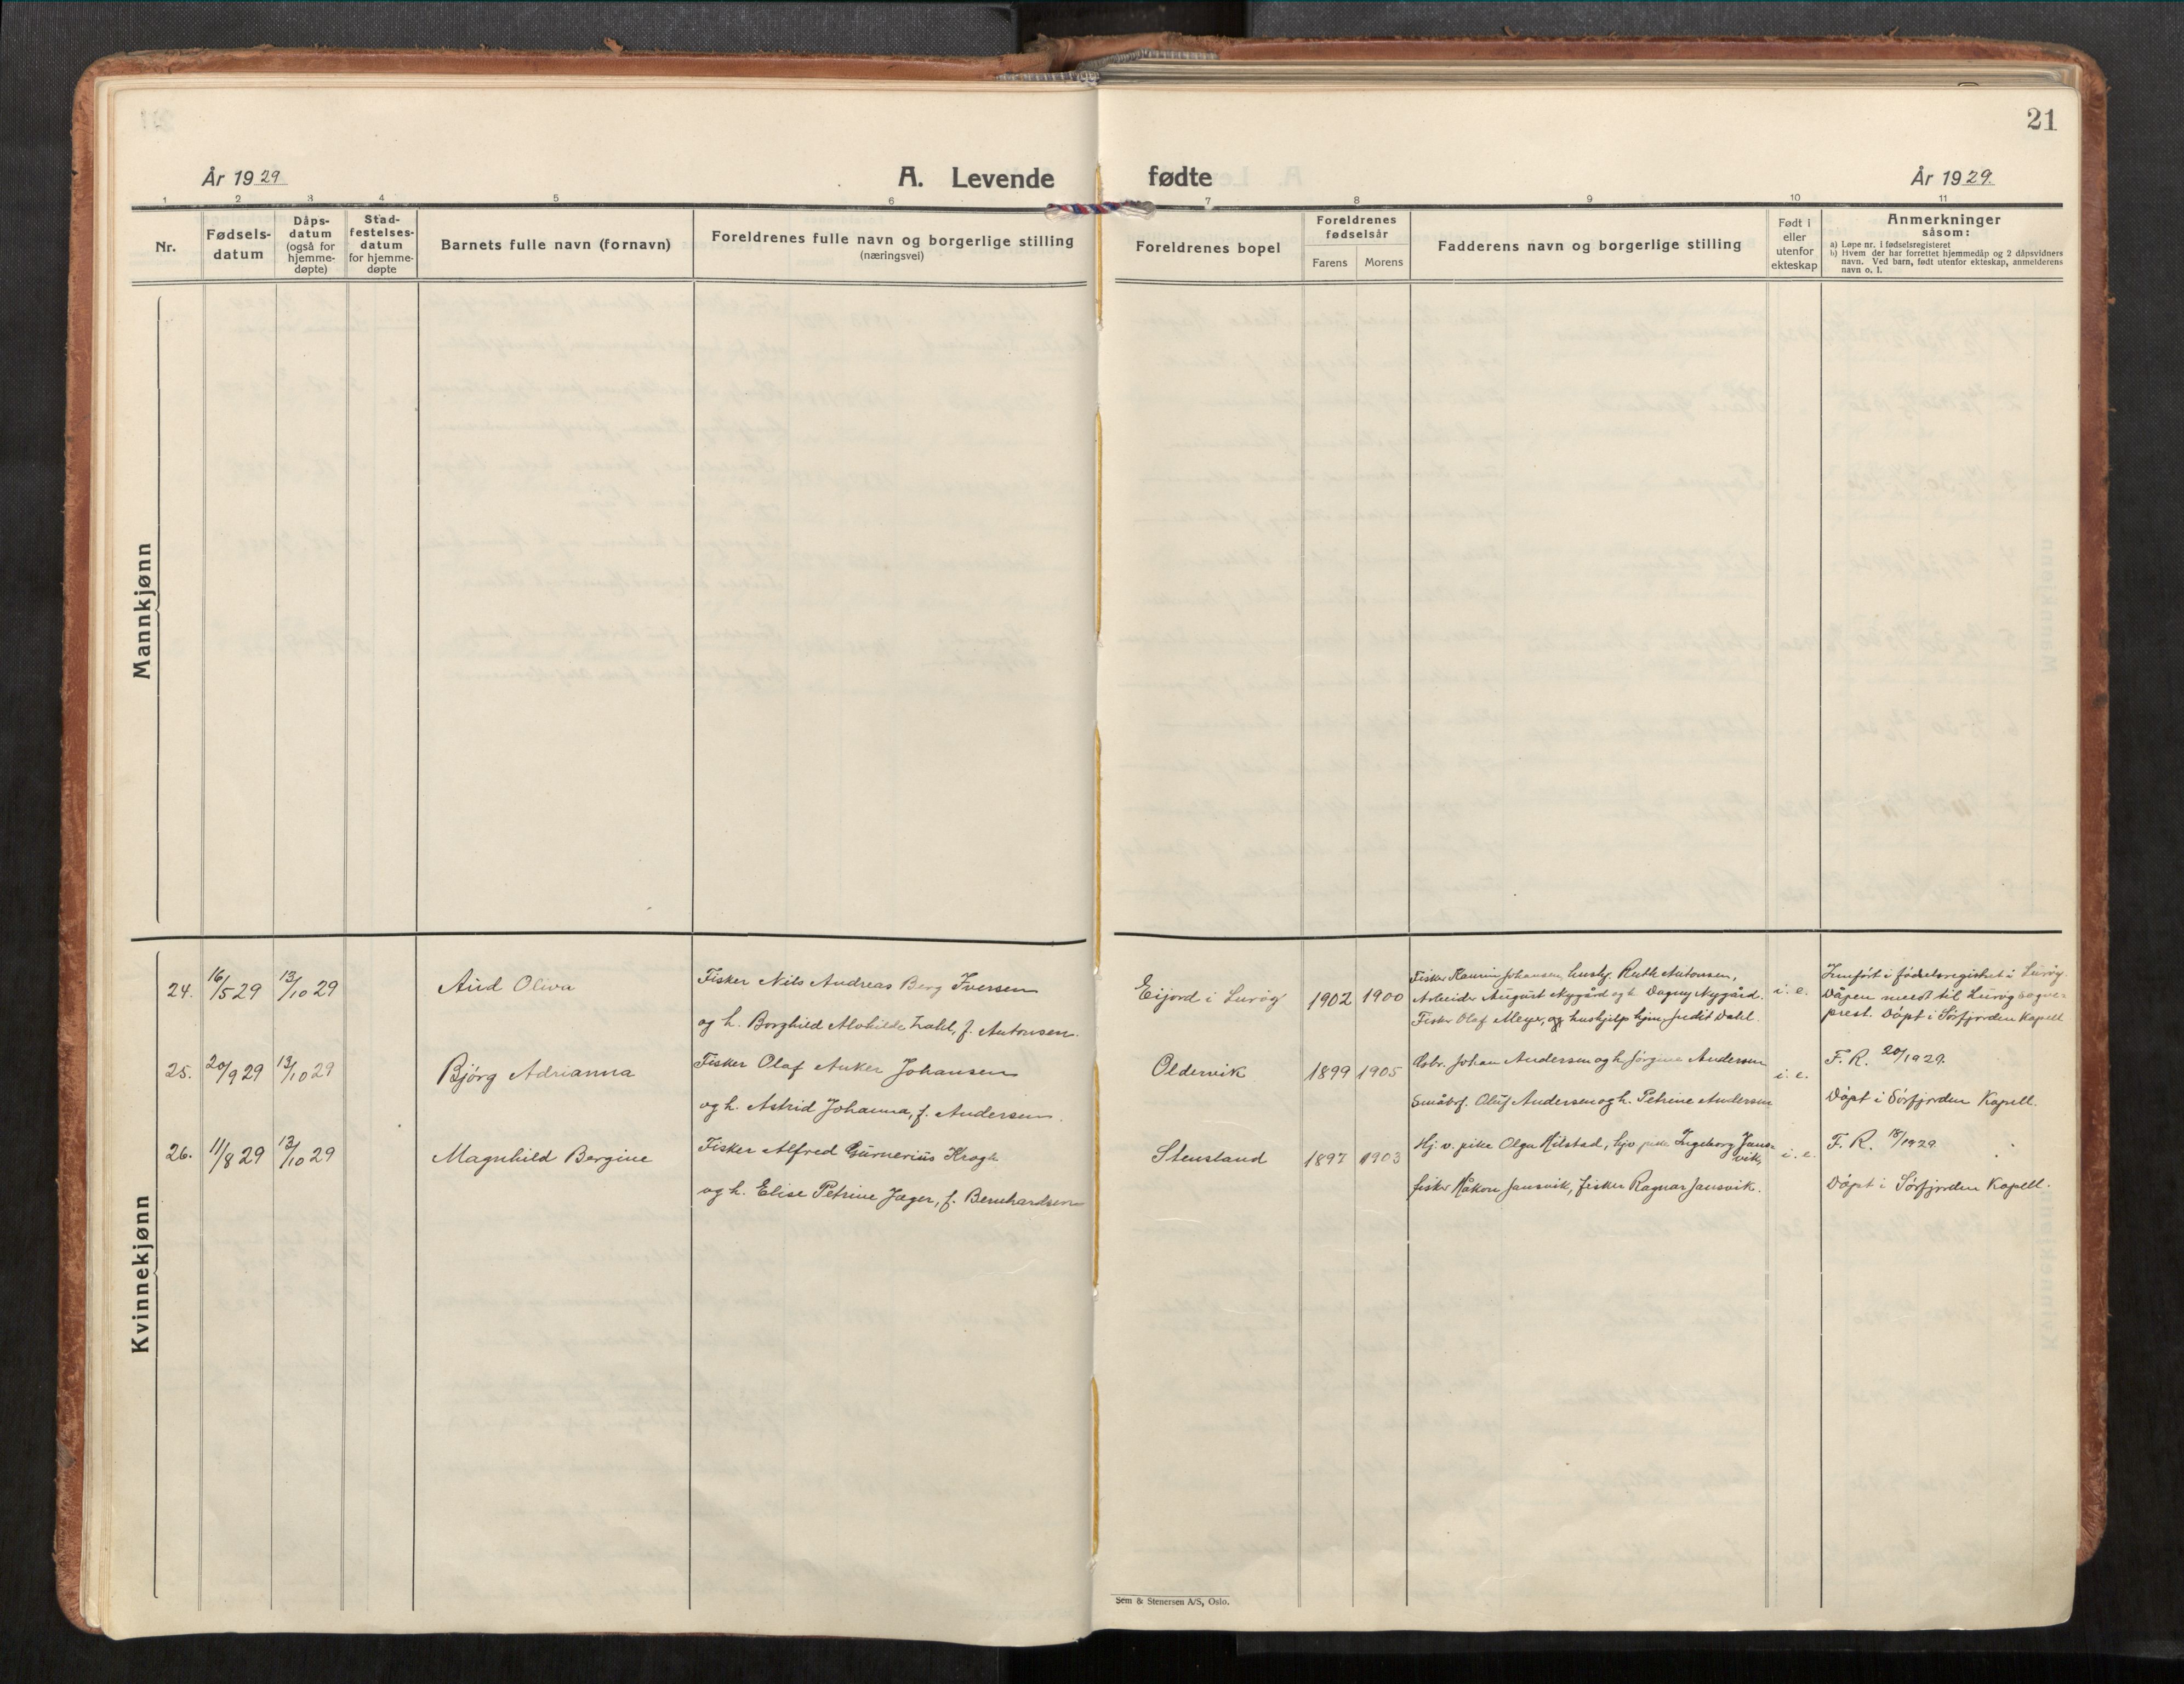 21
År 1929
A. Levende fødte
År 1929.
1 2 3 4 5 6 7 8 9 10 11
Nr.
Fødsels-
datum
Dåps-
datum
(også for
hjemme-
døpte)
Stad-
festelses-
datum
for hjemme-
døpte
Barnets fulle navn (fornavn)
Foreldrenes fulle navn og borgerlige stilling
(næringsvei)
Foreldrenes bopel
Foreldrenes
fødselsår
Farens Morens
Fadderens navn og borgerlige stilling
Født i
eller
utenfor
ekteskap
Anmerkninger
såsom:
a) Løpe nr. i fødselsregisteret
b) Hvem der har forrettet hjemmedåp og 2 dåpsvidners
navn. Ved barn, født utenfor ekteskap, anmelderens
navn o. l.
Mannkjønn
Kvinnekjønn
24. 16/5 29 13/10 29 Aud Oliva
Fisker Nils Andreas Berg Iversen
og h. Borghild Alvhilde Dahl, f. Antonsen.
Eijord i Lurøy 1902 1900
Fisker Kaurin Johansen, hustr. Ruth Antonsen,
Arbeider August Nygård og h. Dagny Nygård.
Fisker Olaf Meyer, og hushjelp hjm. Judit Dahl.
i. e.
Innført i fødselsregistret i Lurøy.
Dåpen meldt til Lurøy sogne-
prest. Døpt i Sørfjorden Kapell
25. 20/9 29 13/10 29 Bjørg Adrianna
Fisker Olaf Anker Johansen
og h. Astrid Johanna, f. Andersen.
Oldervik 1899 1905
Gbr. Johan Andersen og h. Jørgine Andersen
Småbr. Oluf Andersen og h. Petrine Andersen
i. e.
F. R. 20/1929.
Døpt i Sørfjorden Kapell.
26. 11/8 29 13/10 29 Magnhild Bergine
Fisker Alfred Gurnerius Krogh
og h. Elise Petrine Jæger, f. Bernhardsen
Stensland 1897 1903
Hj. v. pike Olga Hilstad, hjv. pike Ingeborg Jans-
vik,
fisker Håkon Jansvik, fisker Ragnar Jansvik.
i. e.
F. R. 18/1929.
Døpt i Sørfjorden Kapell.
Sem & Stenersen A/S, Oslo.